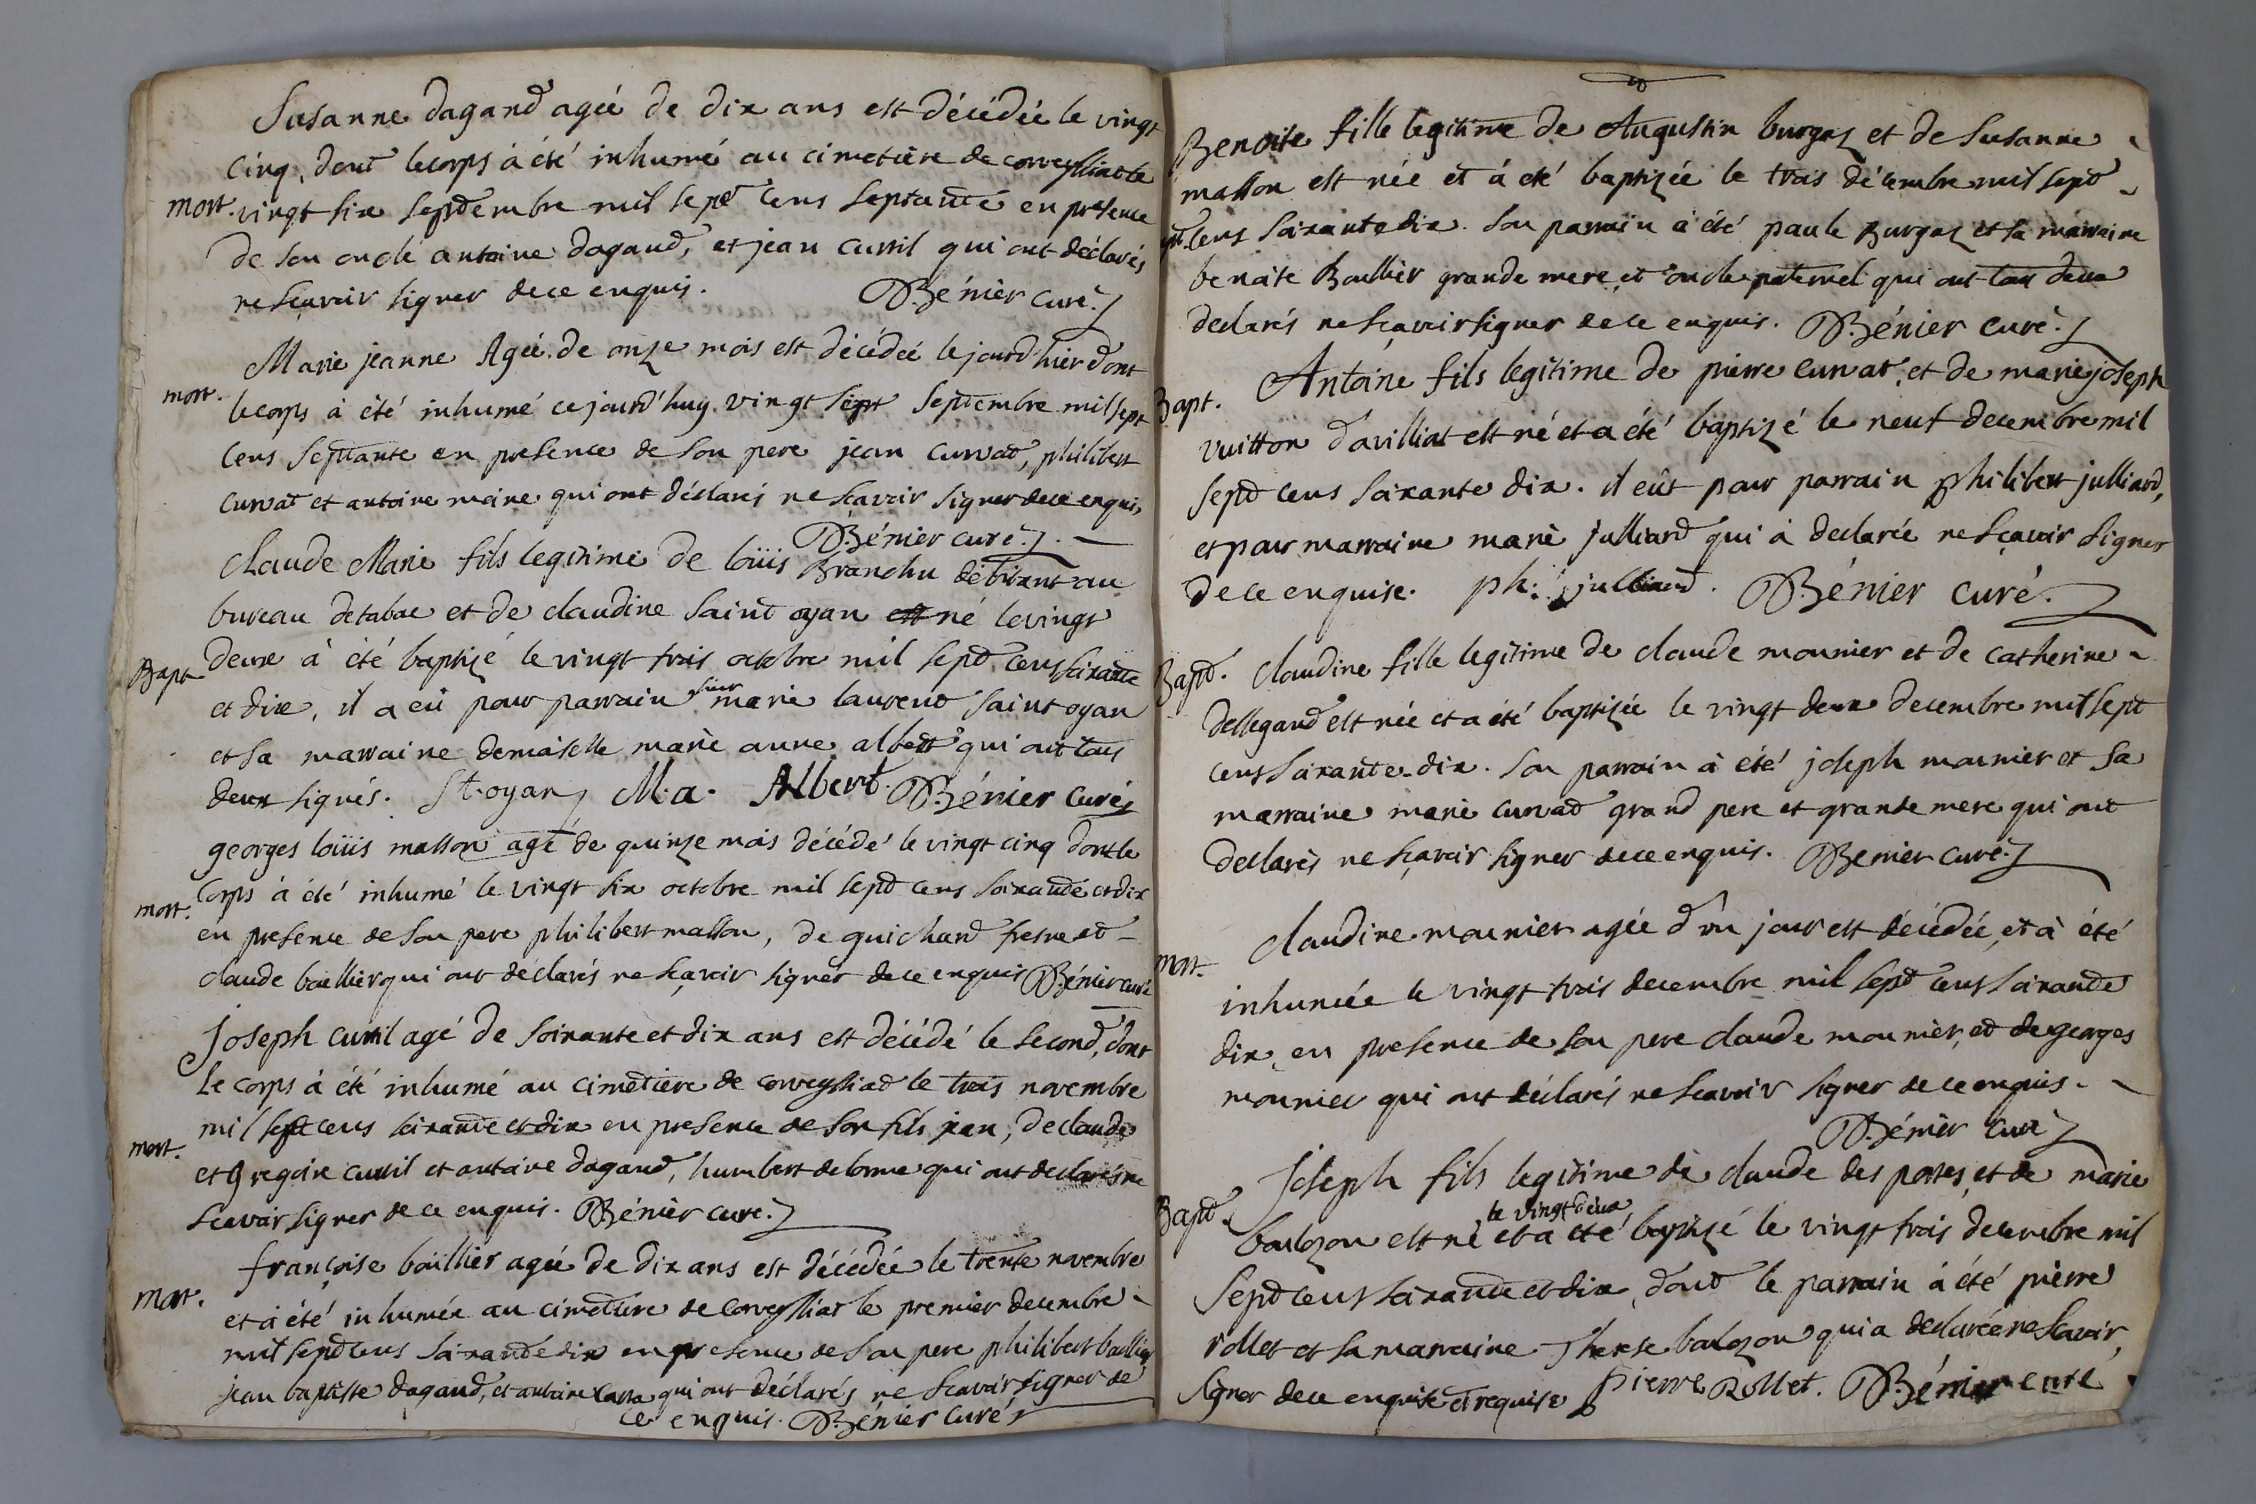 Susanne dagand agée de dix ans est décédée le vingt
cinq, dont le corps à été inhumé au cimetière de corveyssiat le
mort. vingt six septembre mil sept cens septante en presence
de son oncle antoine dagand, et jean curtil qui ont déclarés
ne sçavoir signer de ce enquis. Bénier curé
Marie jeanne Agée de onze mois est décédée le jourd'hier dont
mort. le corps à été inhumé ce jourd'huy vingt sept septembre mil sept
cens septante en presence de son pere jean curvat, philibert
curvat et antoine moine qui ont déclarés ne scavoir signer de ce enquis,
Bénier curé.
Claude Marie fils legitime de loüis Branchu débitant au
bureau de tabac et de claudine saint oyan né le vingt
Bapt deux à été baptizé le vingt trois octobre mil sept cens soixante
et dix, il a eû pour parrain sieur marie laurent saint oyan
et sa marraine demoiselle marie anne albert qui ont tous
deux signés. St. oyan M. a. Albert. Bénier curé
georges loüis masson agé de quinze mois décédé le vingt cinq dont le
mort. Corps à été inhumé le vingt six octobre mil sept cens soixante et dix
en presence de son pere philibert masson, de guichard fresne et
claude boullier qui ont déclarés ne sçavoir signer de ce enquis Bénier curé
Joseph curtil agé de soixante et dix ans est décédé le second, dont
le corps à été inhumé au cimetiere de corveyssiat le trois novembre
mort. mil sept cens soixante et dix en presence de son fils jean, de claude
et gregoire curtil et antoine dagand, humbert delorme qui ont declarés ne
scavoir signer de ce enquis. Bénier curé.
françoise boüillier agée de dix ans est décédée le trente novembre
mort. et à été inhumée au cimetiere de Corveyssiat le premier decembre
mil sept cens soixante dix en presence de son pere philibert boullier
jean baptiste dagand, et antoine qui ont déclarés ne scavoir signer de
ce enquis. Bénier curé
Benoite fille legitime de Augustin burgoz et de Susanne
masson est née et à eté baptizée le trois décembre mil sept
cens soixante dix. son parrain à été paule Burgoz et sa marraine
benoite Boullier grande mere, et oncle paternel qui ont tous deux
declarés ne sçavoir signer de ce enquis. Bénier curé.
Antoine fils legitime de pierre curvat, et de marie joseph
Bapt. vuitton d'avilliat est né et a été baptizé le neuf decembre mil
sept cens soixante dix. il eût pour parrain philibert julliard,
et pour marraine marie julliard qui à declarée ne sçavoir signer
de ce enquise. ph: julliard. Bénier curé.
Bapt. Claudine fille legitime de claude mounier et de catherine
dellegand est née et a été baptizée le vingt deux decembre mil sept
cens soixante-dix. son parrain à été joseph mounier et sa
marraine marie curvat grand pere et grande mere qui ont
declarés ne sçavoir signer de ce enquis. Benier curé.
claudine mounier agée d'un jour est décédée, et à été
mort. inhumée le vingt trois decembre mil sept cens soixante
dix, en presence de son pere claude mounier, et de georges
mounier qui ont déclarés ne scavoir signer de ce enquis.
Bénier curé
Joseph fils legitime de claude des portes, et de marie
Bapt. le vingt deux
boulozon est né et a été baptizé le vingt trois decembre mil
sept cens soixante et dix, dont le parrain à été pierre
rollet et sa marraine Therese boulozon qui a declarée ne scavoir,
signer de ce enquise et requise pierre Rollet. Bénier curé